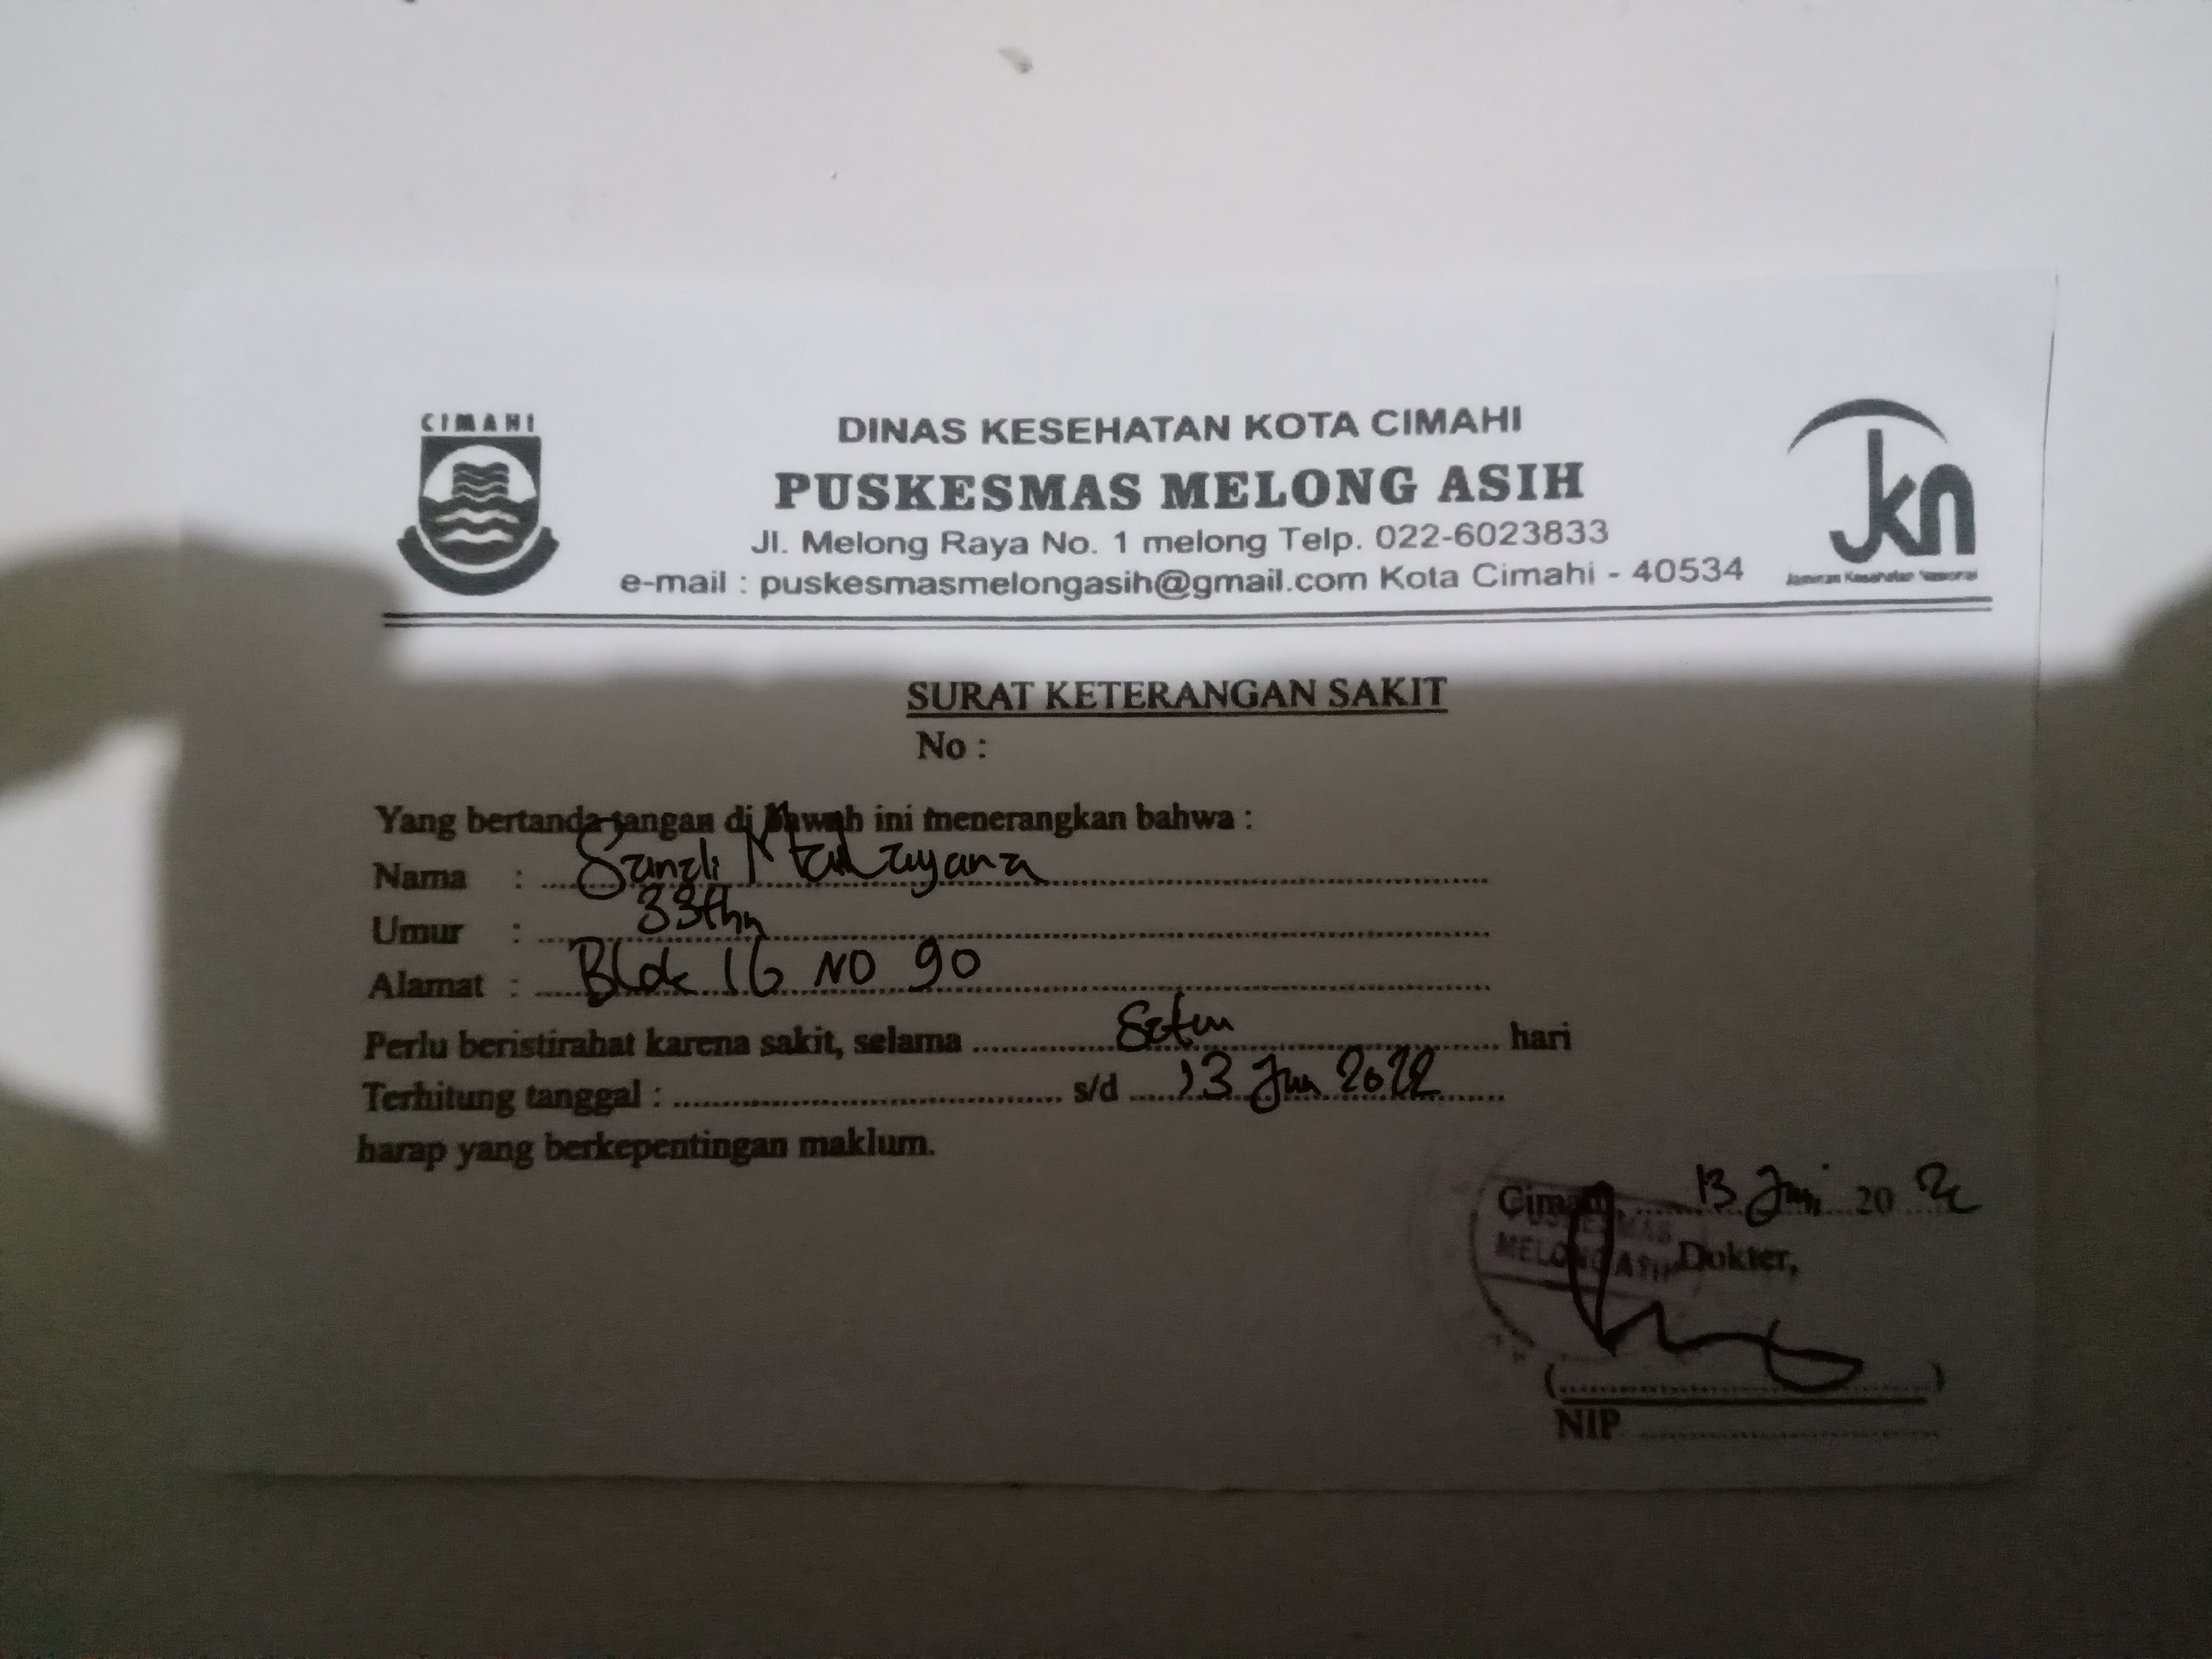 CIMAHI
DINAS KESEHATAN KOTA CIMAHI
PUSKESMAS MELONG ASIH
Jl. Melong Raya No. 1 melong Telp. 022-6023833
e-mail : puskesmasmelongasih@gmail.com Kota Cimahi - 40534
jkn
SURAT KETERANGAN SAKIT
No :
Yang bertanda tangan di bawah ini menerangkan bahwa :
Nama :
Umur : 33thn
Alamat : Blok 16 NO 90
Perlu beristirahat karena sakit, selama Satu hari
Terhitung tanggal : s/d 13 Jun 2022
harap yang berkepentingan maklum.
13 Juni 20
MELONG ASIH
Dokter,
( )
NIP